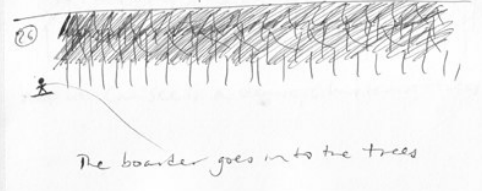 26
The boarder goes into the trees